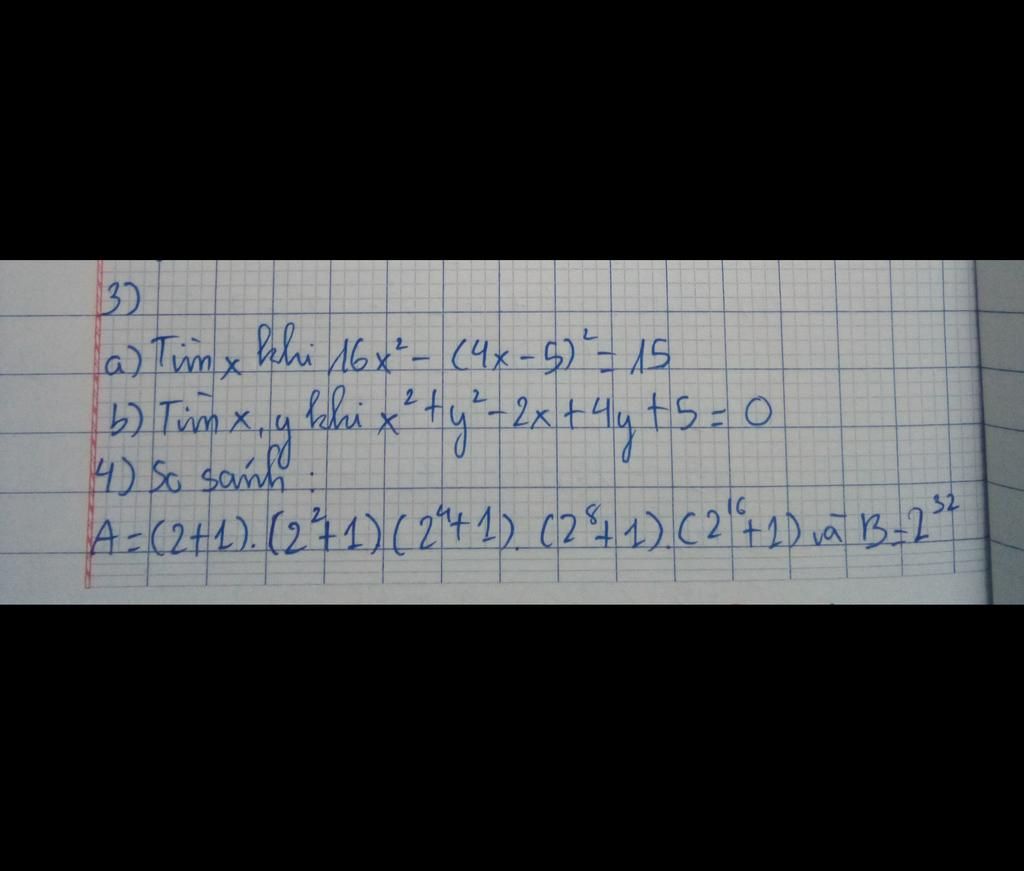 3)
a) Tìm x khi 16x² - (4x - 5)² = 15
b) Tìm x, y khi x² + y² - 2x + 4y + 5 = 0
4) So sánh :
A = (2+1). (2²+1) (2⁴+1). (2⁸+1). (2¹⁶+1) và B = 2³²